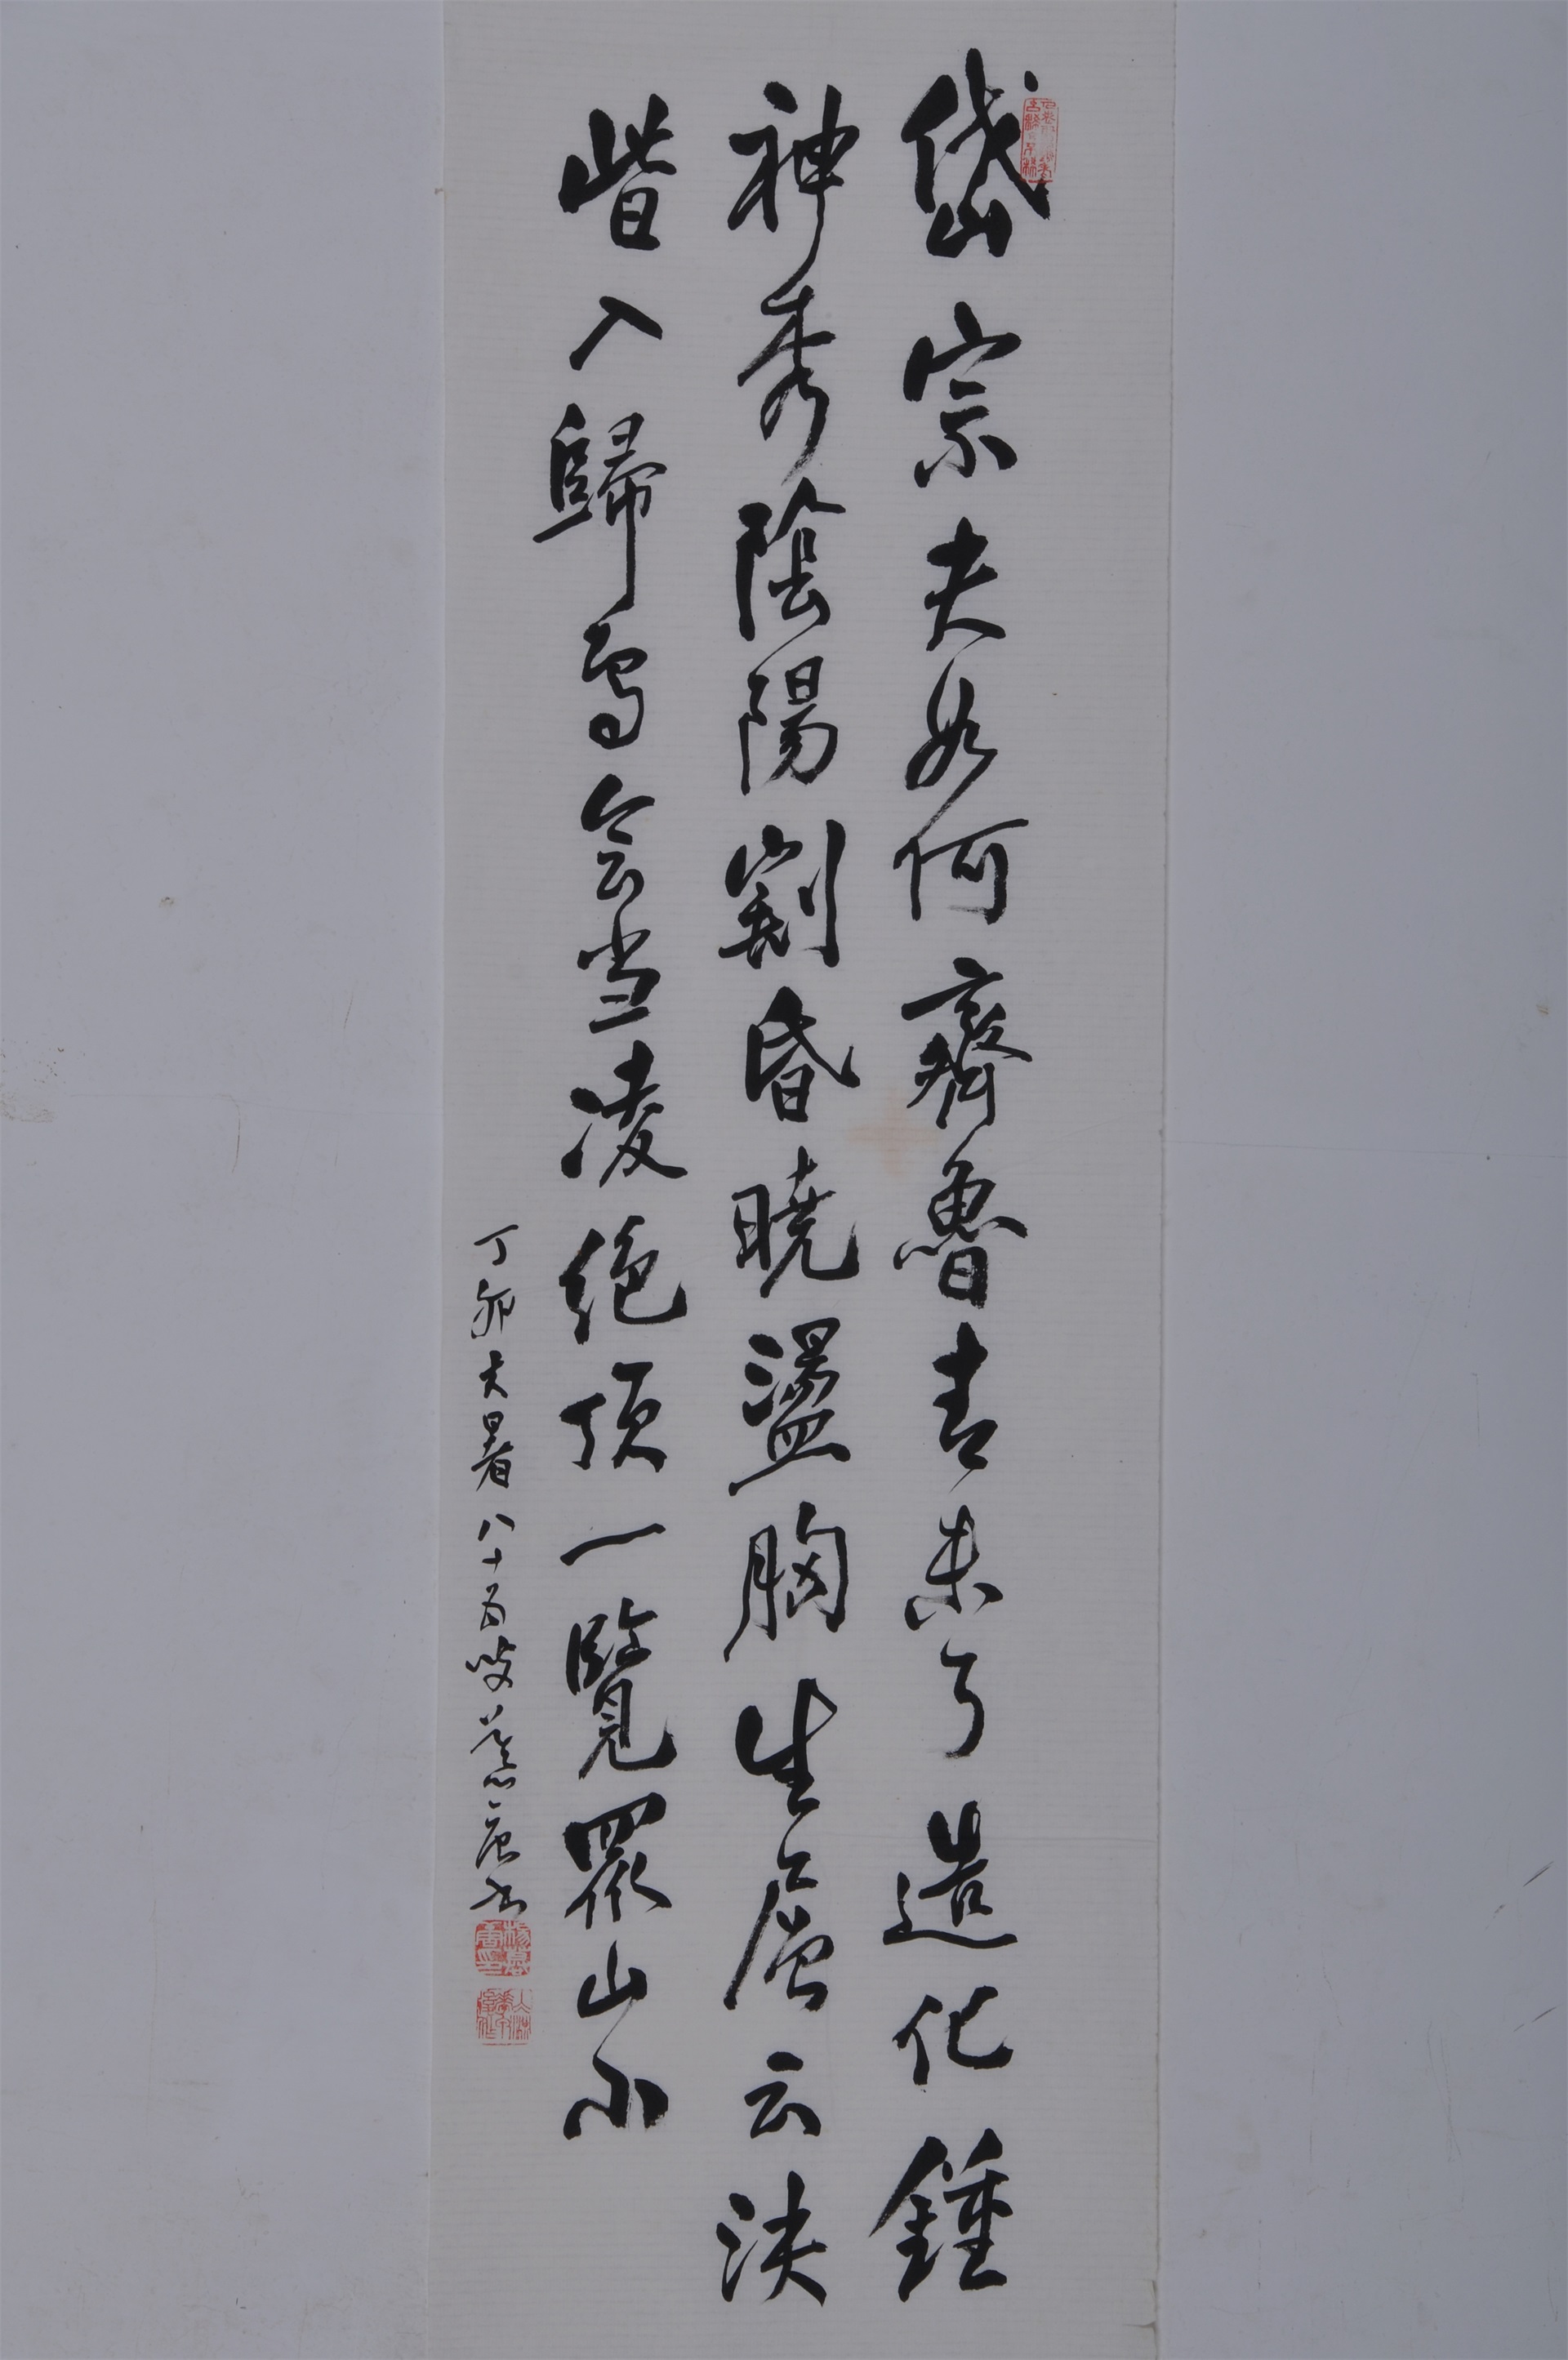 岱宗夫如何齊魯青未了造化鍾
神秀陰陽割昏曉盪胸生層云決
眥入歸鸟会当凌绝顶一覽眾山小
丁卯大暑八十五叟慕唐书